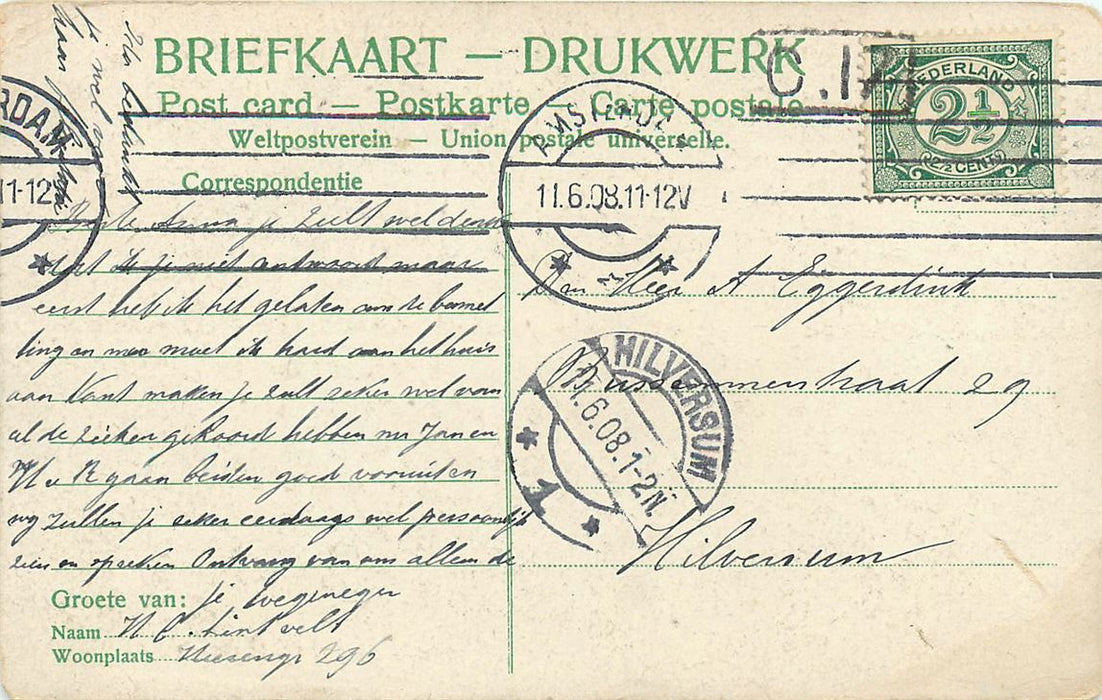 BRIEFKAART — DRUKWERK
Post card — Postkarte — Carte postale
Weltpostverein — Union postale universelle.
Correspondentie
C.12
NEDERLAND
2½
(2½ CENT)
AMSTERDAM
11.6.08.11-12V
2
RDAM
11-12V
HILVERSUM
11.6.08.1-2N.
1
Beste Anna je zult wel denken
je niet antwoord maar
eerst heb ik het gelaten om de
en moet ik hard aan het huis
aan Kant maken je zult zeker wel van
al de zieken gehoord hebben nu Jan en
gaan beiden goed vooruit en
zullen je zeker eerdaags wel persoonlijk
zien en spreken Ontvang van ons allen de
Groete van: je
Naam H C
Woonplaats 296
Den Heer A Eggerdink
Bussummerstraat 29
Hilversum